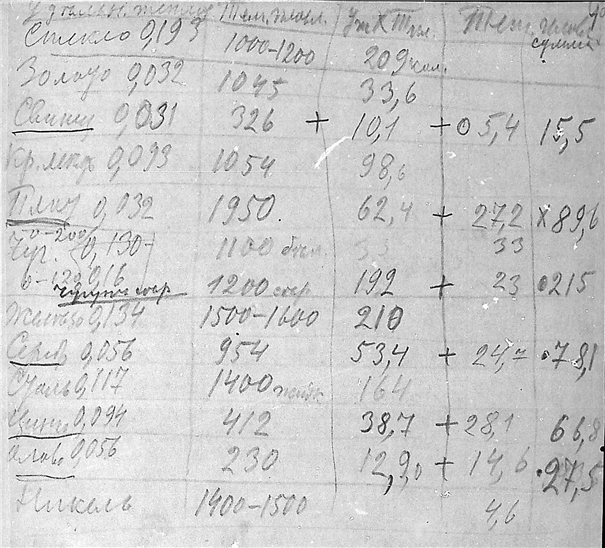 Удельн. тепло Тем. плавл. Уд. Х Тпл. Тепл. Числов. сумма
Стекло 0,193 1000–1200 209 кал.
Золото 0,032 1045 33,6
Свинец 0,031 326 + 10,1 + 05,4 15,5
Кр. медь 0,093 1054 98,6
Плат 0,032 1950. 62,4 + 27,2 х 89,6
0–200
Чуг. 0,130– 1100 бел. 33 33
0–1200 0,16 1200 сер. 192 + 23 0215
чугун сер.
Железо 0,134 1500–1600 210
Сереб 0,056 954 53,4 + 24,7 •78,1
Сталь 0,117 1400 164
Цинк 0,094 412 38,7 + 28,1 66,8
Олово 0,056 230 12,90 + 14,6 •27,5
Никель 1400–1500 4,6